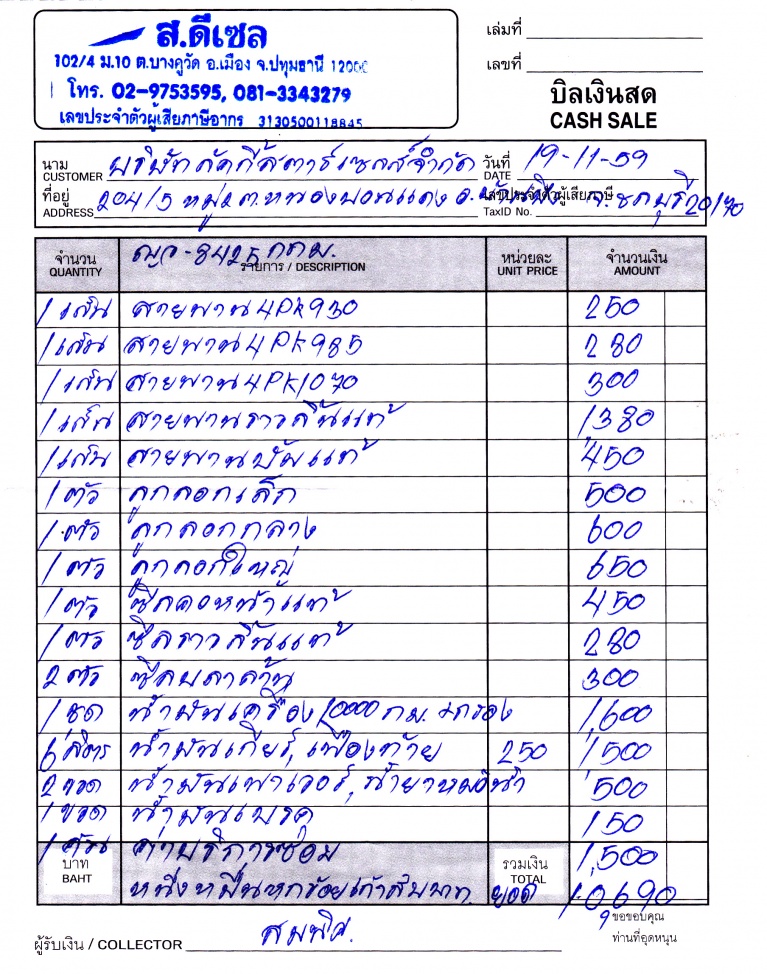 ส.ดีเซล
102/4 ม.10 ต.บางคูวัด อ.เมือง จ.ปทุมธานี 12000
โทร. 02-9753595, 081-3343279
เลขประจำตัวผู้เสียภาษีอากร 3130500118845
เล่มที่
เลขที่
บิลเงินสด
CASH SALE
นาม CUSTOMER บริษัท ภัคกี้สตาร์เซลส์จำกัด วันที่ DATE 19-11-59
ที่อยู่ ADDRESS 204/5 หมู่ ต.หนองบอนแดง อ. เลขประจำตัวผู้เสียภาษี TaxID No. จ.ชลบุรี 20170
จำนวน QUANTITY -8425 กทม. รายการ / DESCRIPTION หน่วยละ UNIT PRICE จำนวนเงิน AMOUNT
1 เส้น สายพาน 4PK930 250
1 เส้น สายพาน 4PK985 280
1 เส้น สายพาน 4PK1070 300
1 เส้น สายพานราวลิ้นแท้ 1,380
1 เส้น สายพานปั้มแท้ 450
1 ตัว ลูกลอกเล็ก 500
1 ตัว ลูกลอกกลาง 600
1 ตัว ลูกลอกใหญ่ 650
1 ตัว ซีลคอหน้าแท้ 450
1 ตัว ซีลราวลิ้นแท้ 280
2 ตัว ซีล 300
1 ชุด น้ำมันเครื่อง 10000 กม. +กรอง 1,600
6 ลิตร น้ำมันเกียร์, เฟืองท้าย 250 1,500
2 ขวด น้ำมันเพาเวอร์, น้ำยาหม้อน้ำ 500
1 ขวด น้ำมันเบรค 150
1 คัน ค่าบริการซ่อม 1,500
บาท BAHT หนึ่งหมื่นหกร้อยเก้าสิบบาท. รวมเงิน TOTAL ยอด 10,690
ขอขอบคุณ
ท่านที่อุดหนุน
ผู้รับเงิน / COLLECTOR